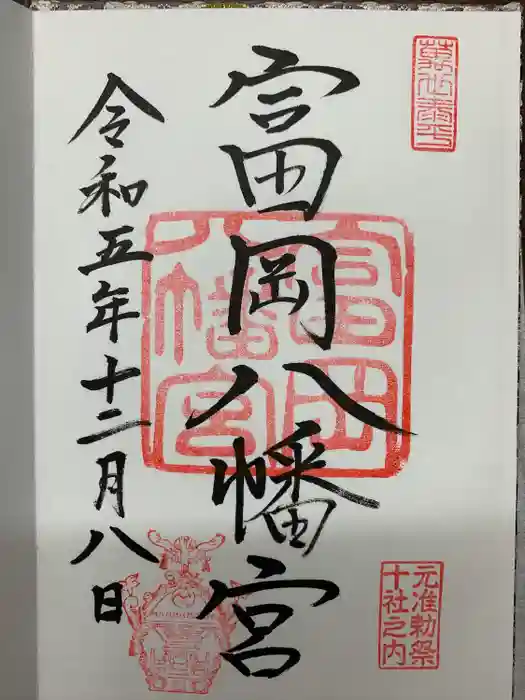 萬世泰平
富岡八幡宮
富岡八幡宮
元准勅祭
十社之内
令和五年十二月八日